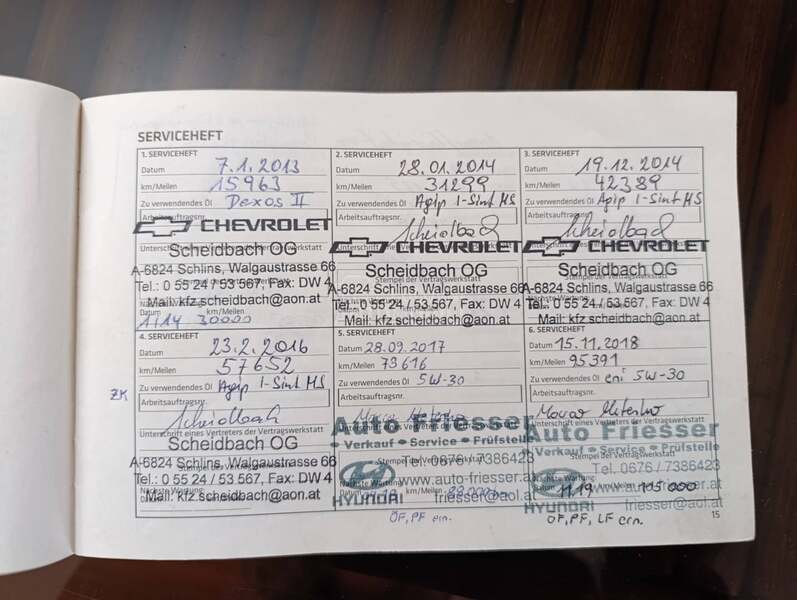 SERVICEHEFT
1. SERVICEHEFT
Datum 7.1.2013
km/Meilen 15963
Zu verwendendes Öl Dexos II
Arbeitsauftragsnr.
CHEVROLET
Unterschrift eines Vertreters der Vertragswerkstatt
Scheidbach OG
A-6824 Schlins, Walgaustrasse 66
Tel.: 0 55 24 / 53 567, Fax: DW 4
Mail: kfz.scheidbach@aon.at
1/14 30000
2. SERVICEHEFT
Datum 28.01.2014
km/Meilen 31299
Zu verwendendes Öl Agip I-Sint MS
Arbeitsauftragsnr.
Scheidbach
CHEVROLET
Scheidbach OG
Stempel der Vertragswerkstatt
A-6824 Schlins, Walgaustrasse 66
Tel.: 0 55 24 / 53 567, Fax: DW 4
Mail: kfz.scheidbach@aon.at
3. SERVICEHEFT
Datum 19.12.2014
km/Meilen 42389
Zu verwendendes Öl Agip I-Sint MS
Arbeitsauftragsnr.
Scheidbach
CHEVROLET
Scheidbach OG
Stempel der Vertragswerkstatt
A-6824 Schlins, Walgaustrasse 66
Tel.: 0 55 24 / 53 567, Fax: DW 4
Mail: kfz.scheidbach@aon.at
4. SERVICEHEFT
Datum 23.2.2016
km/Meilen 57652
ZK
Zu verwendendes Öl Agip I-Sint MS
Arbeitsauftragsnr.
Scheidbach
Unterschrift eines Vertreters der Vertragswerkstatt
Scheidbach OG
A-6824 Schlins, Walgaustrasse 66
Tel.: 0 55 24 / 53 567, Fax: DW 4
Mail: kfz.scheidbach@aon.at
5. SERVICEHEFT
Datum 28.09.2017
km/Meilen 73616
Zu verwendendes Öl 5W-30
Arbeitsauftragsnr.
Auto Friesser
Unterschrift eines Vertreters der Vertragswerkstatt
Verkauf • Service • Prüfstelle
Stempel der Vertragswerkstatt
Tel. 0676 / 7386423
www.auto-friesser.at
Nächste Wartung
Datum km/Meilen
HYUNDAI friesser@aol.at
ÖF, PF ern.
6. SERVICEHEFT
Datum 15.11.2018
km/Meilen 95391
Zu verwendendes Öl eni 5W-30
Arbeitsauftragsnr.
Auto Friesser
Unterschrift eines Vertreters der Vertragswerkstatt
Verkauf • Service • Prüfstelle
Stempel der Vertragswerkstatt
Tel. 0676 / 7386423
Nächste Wartung
www.auto-friesser.at
Datum 11.19 km/Meilen 105000
HYUNDAI friesser@aol.at
ÖF, PF, LF ern.
15